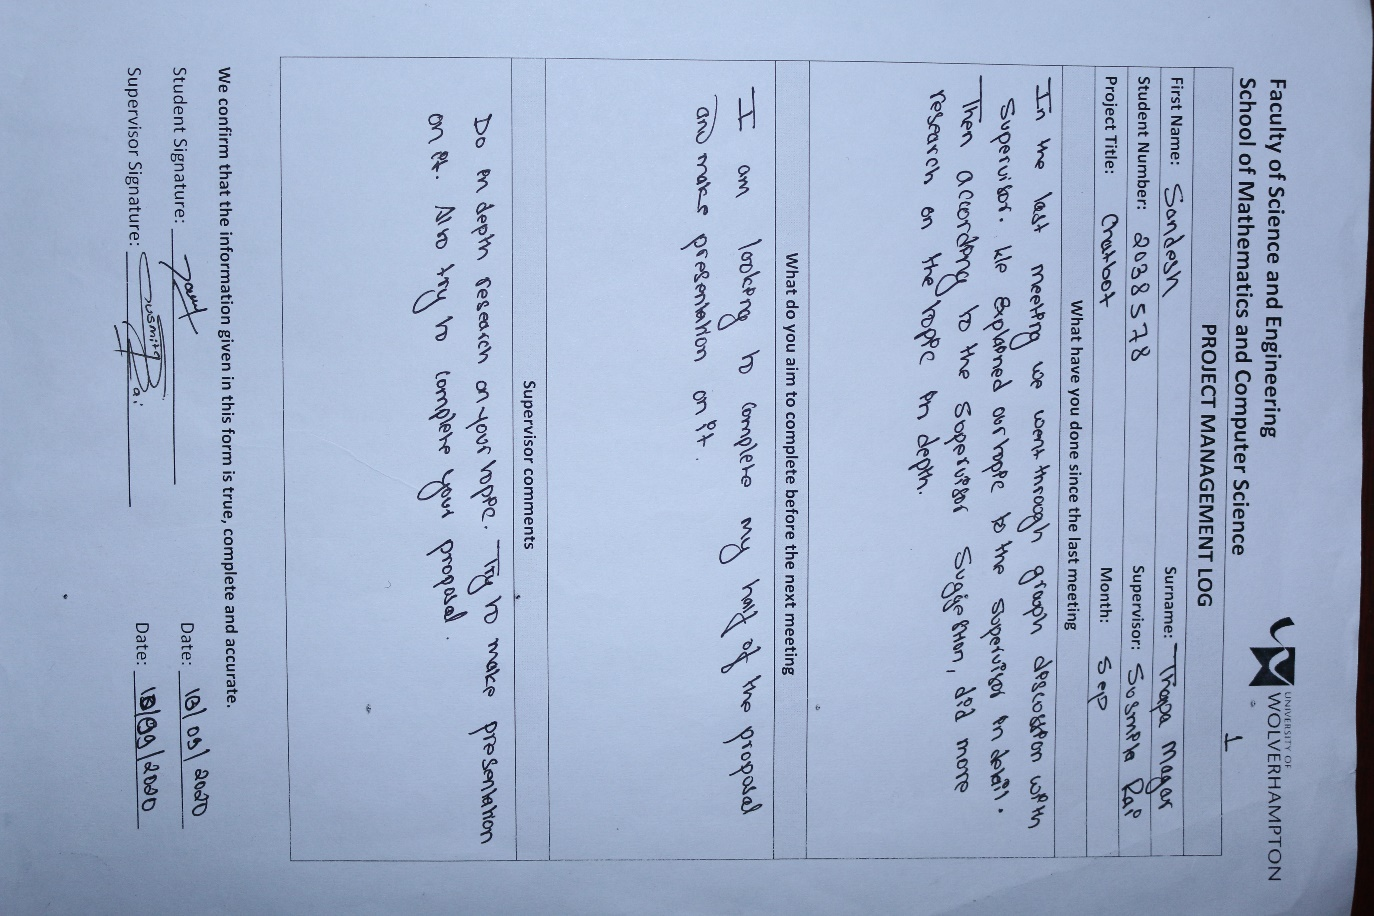 Faculty of Science and Engineering
School of Mathematics and Computer Science
UNIVERSITY OF
WOLVERHAMPTON
1
PROJECT MANAGEMENT LOG
First Name: Sandesh Surname: Thapa Magar
Student Number: 2038578 Supervisor: Susmita Rai
Project Title: Chatbot Month: Sep
What have you done since the last meeting
In the last meeting we went through graph discussion with
Supervisor. We explained our topic to the supervisor in detail.
Then according to the supervisor suggestion, did more
research on the topic in depth.
What do you aim to complete before the next meeting
I am looking to complete my half of the proposal
and make presentation on it.
Supervisor comments
Do in depth research on your topic. Try to make presentation
on it. Also try to complete your proposal.
We confirm that the information given in this form is true, complete and accurate.
Student Signature: Date: 18/09/2020
Supervisor Signature: Susmita Rai Date: /2020